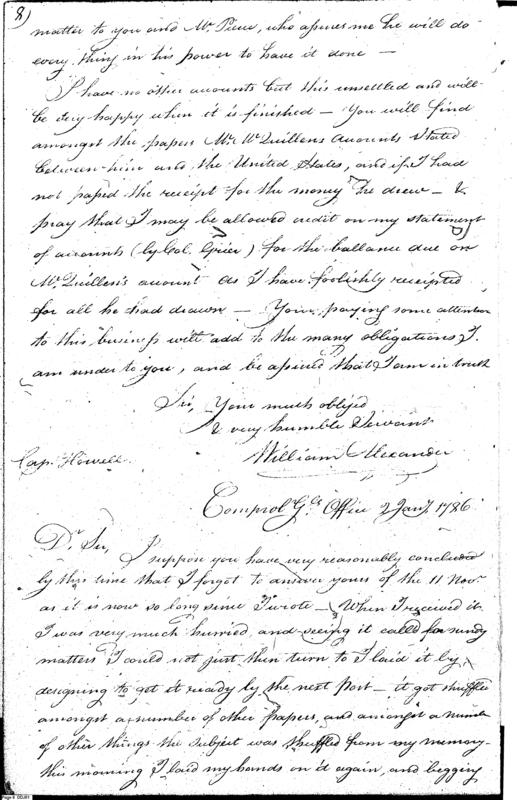 8)
matter to you and Mr. Pierce, who assures me he will do
every thing in his power to have it done —
I have no other accounts but this unsettled and will
be very happy when it is finished — You will find
amongst the papers Mr. McQuillens accounts stated
between him and the United States, and if I had
not passed the receipt for the money he drew — I
pray that I may be allowed credit on my statement
of accounts (by Col. Grier) for the ballance due on
McQuillen's account as I have foolishly receipted
for all he had drawn — Your paying some attention
to this business will add to the many obligations I
am under to you, and be assured that I am in truth
Sir, Your much oblij'd
& very humble Servant
William Alexander
Cap. Howell
Comprol. Gls Office 2 Jany. 1786
Dr. Sir, I suppose you have very reasonably concluded
by this time that I forgot to answer yours of the 11 Novr
as it is now so long since I wrote — When I received it
I was very much hurried, and seeing it called for sundry
matters I could not just then turn to I laid it by,
designing to get it ready by the next Post — it got shuffled
amongst a number of other papers, and amongst a number
of other things the subject was shuffled from my memory —
this morning I laid my hands on it again, and begging
Page 8 DDJ01